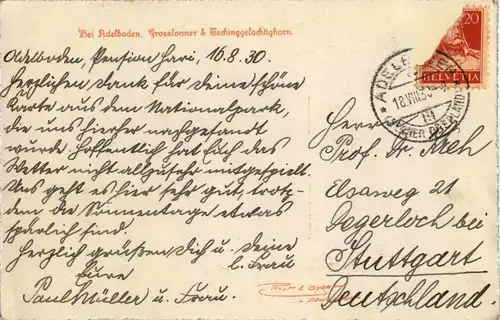 Bei Adelboden, Grosslonner & Tschinggelochtighorn.
Adelboden, Pension Hari, 16.8.30.
Herzlichen Dank für Deine schöne
Karte aus dem Nationalpark,
die uns hierher nachgesandt
wurde. Hoffentlich hat Euch das
Wetter nicht allzusehr mitgespielt.
Uns geht es hier sehr gut, trotz-
dem die Sonnentage etwas
spärlich sind.
Herzlich grüßen Dich u. Deine
l. Frau
Eure
Paul Müller u. Frau.
20
HELVETIA
ADELBODEN
18.VIII.30
(BERNER OBERLAND)
Herrn
Prof. Dr. Kreh
Elsaweg 21
Degerloch bei
Stuttgart
Deutschland.